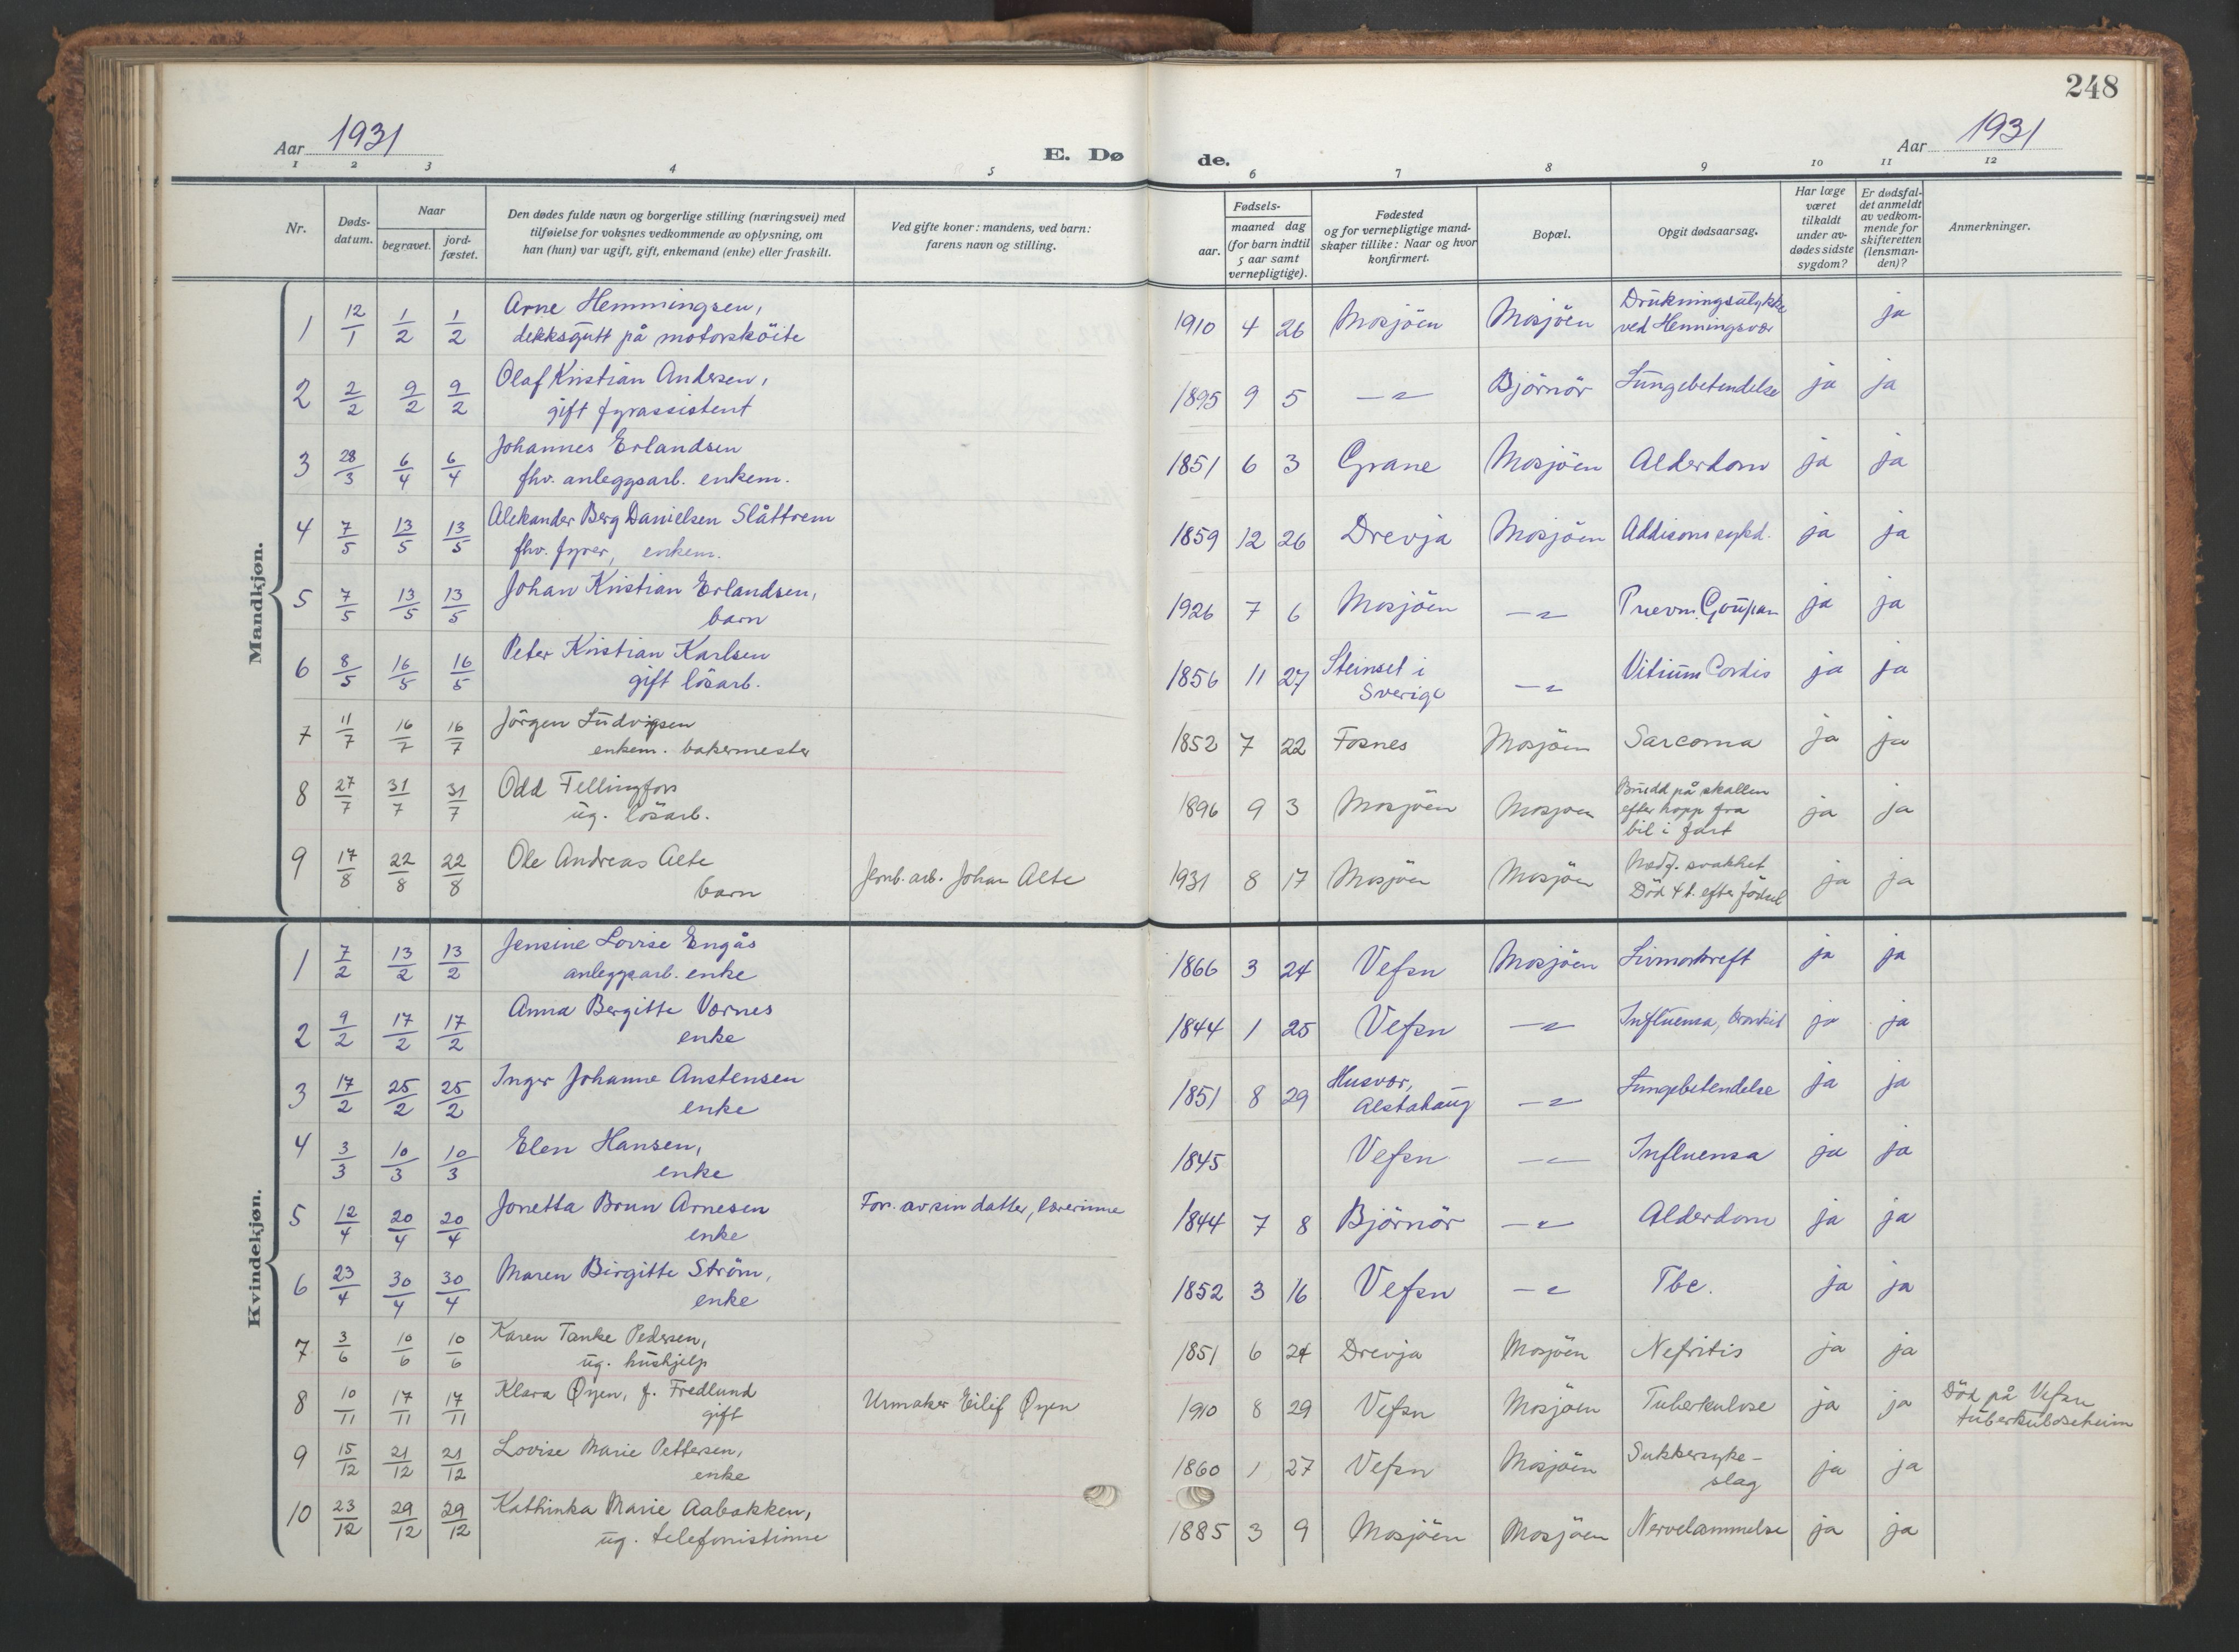 248
Aar 1931
E. Dø de.
Aar 1931
1 2 3 4 5 6 7 8 9 10 11 12
Nr.
Døds-
datum.
Naar
begravet.
jord-
fæstet.
Den dødes fulde navn og borgerlige stilling (næringsvei) med
tilføielse for voksnes vedkommende av oplysning, om
han (hun) var ugift, gift, enkemand (enke) eller fraskilt.
Ved gifte koner: mandens, ved barn:
farens navn og stilling.
Fødsels-
aar.
maaned dag
(for barn indtil
5 aar samt
vernepligtige).
Fødested
og for vernepligtige mand-
skaper tillike: Naar og hvor
konfirmert.
Bopæl.
Opgit dødsaarsag.
Har læge
været
tilkaldt
under av-
dødes sidste
sygdom?
Er dødsfal-
det anmeldt
av vedkom-
mende for
skifteretten
(lensman-
den)?
Anmerkninger.
Mandkjøn.
1 12/1 1/2 1/2 Arne Hemmingsen, 1910 4 26 Mosjöen Mosjöen Drukningsulykke ja
dekksgutt på motorsköite ved Henningsvær
2 2/2 9/2 9/2 Olaf Kristian Andersen, 1895 9 5 —〃— Björnör Lungebetendelse ja ja
gift fyrassistent
3 28/3 6/4 6/4 Johannes Erlandsen 1851 6 3 Grane Mosjöen Alderdom ja ja
fhv. anleggsarb. enkem.
4 7/5 13/5 13/5 Aleksander Berg Danielsen Slåttrem 1859 12 26 Drevja Mosjöen Addisons sykd. ja ja
fhv. fyrer, enkem.
5 7/5 13/5 13/5 Johan Kristian Erlandsen, 1926 7 6 Mosjöen —〃— Pnevm. ja ja
barn
6 8/5 16/5 16/5 Peter Kristian Karlsen 1856 11 27 Steinsel i —〃— Vitium Cordis ja ja
gift lösarb. Sverige
7 11/7 16/7 16/7 Jörgen Ludvigsen 1852 7 22 Fosnes Mosjöen Sarcoma ja ja
enkem. bakermester
8 27/7 31/7 31/7 Odd Fellingfors 1896 9 3 Mosjöen Mosjöen Brudd på skallen ja ja
ug. lösarb. efter hopp fra
bil i fart
9 17/8 22/8 22/8 Ole Andreas Alte Jernb. arb. Johan Alte 1931 8 17 Mosjöen Mosjöen Medf. svakhet ja ja
barn Död 4 t. efter födsel
Kvindekjøn.
1 7/2 13/2 13/2 Jensine Lovise Engås 1866 3 24 Vefsn Mosjöen Livmorkreft ja ja
anleggsarb. enke
2 9/2 17/2 17/2 Anna Bergitte Vornes 1844 1 25 Vefsn —〃— Influensa, bronkit ja ja
enke
3 17/2 25/2 25/2 Inger Johanne Anstensen 1851 8 29 Husvær, —〃— Lungebetendelse ja ja
enke Alstahaug
4 3/3 10/3 10/3 Elen Hansen, 1845 Vefsn —〃— Influensa ja ja
enke
5 12/4 20/4 20/4 Jonetta Brun Arnesen Fors. av sin datter, lærerinne 1844 7 8 Björnör —〃— Alderdom ja ja
enke
6 23/4 30/4 30/4 Maren Birgitte Ström, 1852 3 16 Vefsn —〃— Tbc. ja ja
enke
7 3/6 10/6 10/6 Karen Tanke Pedersen, 1851 6 24 Drevja Mosjöen Nefritis ja ja
ug. hushjelp
8 10/11 17/11 17/11 Klara Øyen, f. Fredlund Urmaker Eilif Øyen 1910 8 29 Vefsn Mosjöen Tuberkulose ja ja Död på Vefsn
gift tuberkuloseheim
9 15/12 21/12 21/12 Lovise Marie Pettersen, 1860 1 27 Vefsn Mosjöen Sukkersyke- ja ja
enke slag
10 23/12 29/12 29/12 Kathinka Marie Aabakken, 1885 3 9 Mosjöen Mosjöen Nervelammelse ja ja
ug. telefonistinne